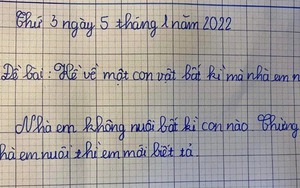 Thứ 3 ngày 5 tháng 1 năm 2022
Đề bài: Kể về một con vật bất kì mà nhà em n
Nhà em không nuôi bất kì con nào
hà em nuôi thì em mới biết tả.